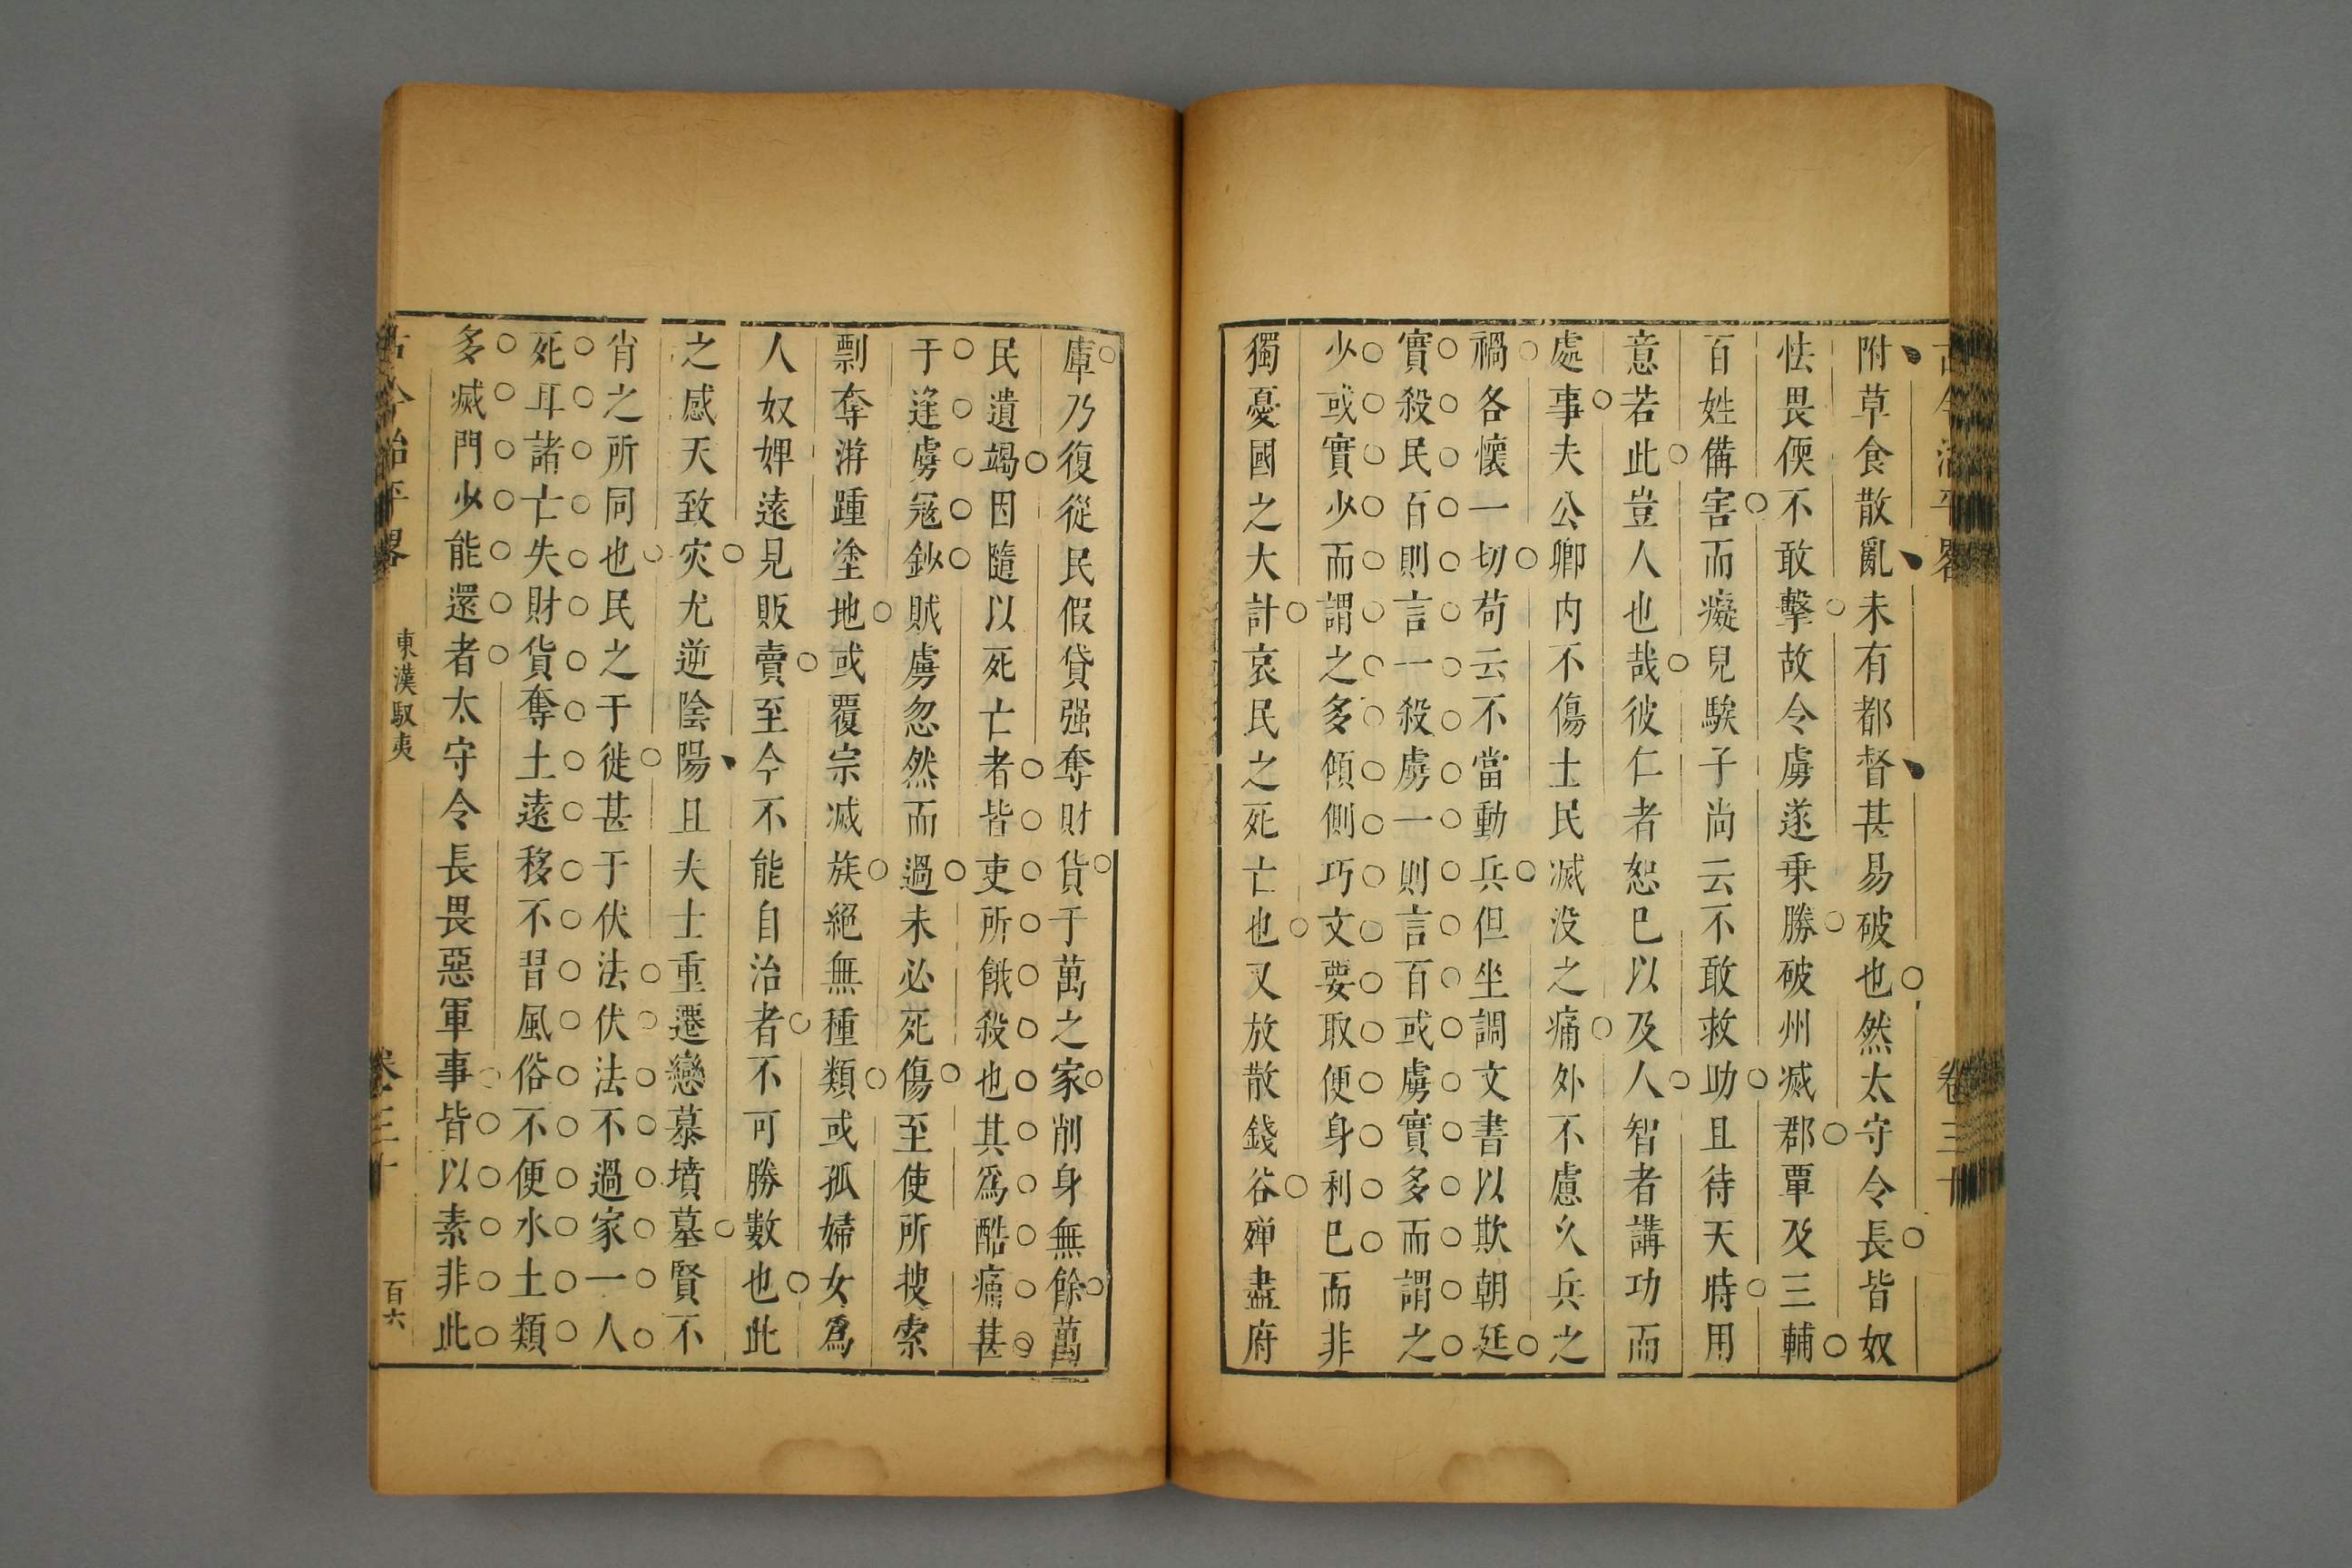 古今治平畧
卷三十
附草食散亂未有都督甚易破也然太守令長皆奴
怯畏偄不敢擊故令虜遂乗勝破州滅郡覃及三輔
百姓備害而癡兒騃子尚云不敢救助且待天時用
意若此豈人也哉彼仁者恕巳以及人智者講功而
處事夫公卿内不傷士民滅没之痛外不慮久兵之
禍各懷一切苟云不當動兵但坐調文書以欺朝廷
實殺民百則言一殺虜一則言百或虜實多而謂之
少或實少而謂之多傾側巧文要取便身利巳而非
獨憂國之大計哀民之死亡也又放散錢谷殫盡府
庫乃復從民假貸强奪財貨于萬之家削身無餘萬
民遺竭因隨以死亡者皆吏所餓殺也其爲酷痛甚
于逢虜寇鈔賊虜忽然而過未必死傷至使所搜索
剽奪游踵塗地或覆宗滅族絕無種類或孤婦女爲
人奴婢遠見販賣至今不能自治者不可勝數也此
之感天致灾尤逆陰陽且夫士重遷戀慕墳墓賢不
肖之所同也民之于徙甚于伏法伏法不過家一人
死耳諸亡失財貨奪土遠移不習風俗不便水土類
多滅門少能還者太守令長畏惡軍事皆以素非此
古今治平畧
東漢馭夷
卷三十
百六